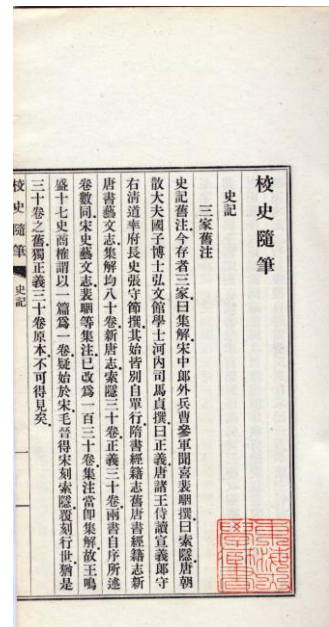 校史隨筆
史記
三家舊注
史記舊注今存者三家曰集解宋中郎外兵曹參軍聞喜裴駰撰曰索隱唐朝
散大夫國子博士弘文館學士河內司馬貞撰曰正義唐諸王侍讀宣義郎守
右清道率府長史張守節撰其始皆別自單行隋書經籍志舊唐書經籍志新
唐書藝文志集解均八十卷新唐志索隱三十卷正義三十卷兩書自序所述
卷數同宋史藝文志裴駰等集注已改爲一百三十卷集注當卽集解故王鳴
盛十七史商榷謂以一篇爲一卷疑始於宋毛晉得宋刻索隱覆刻行世猶是
三十卷之舊獨正義三十卷原本不可得見矣
校史隨筆
史記